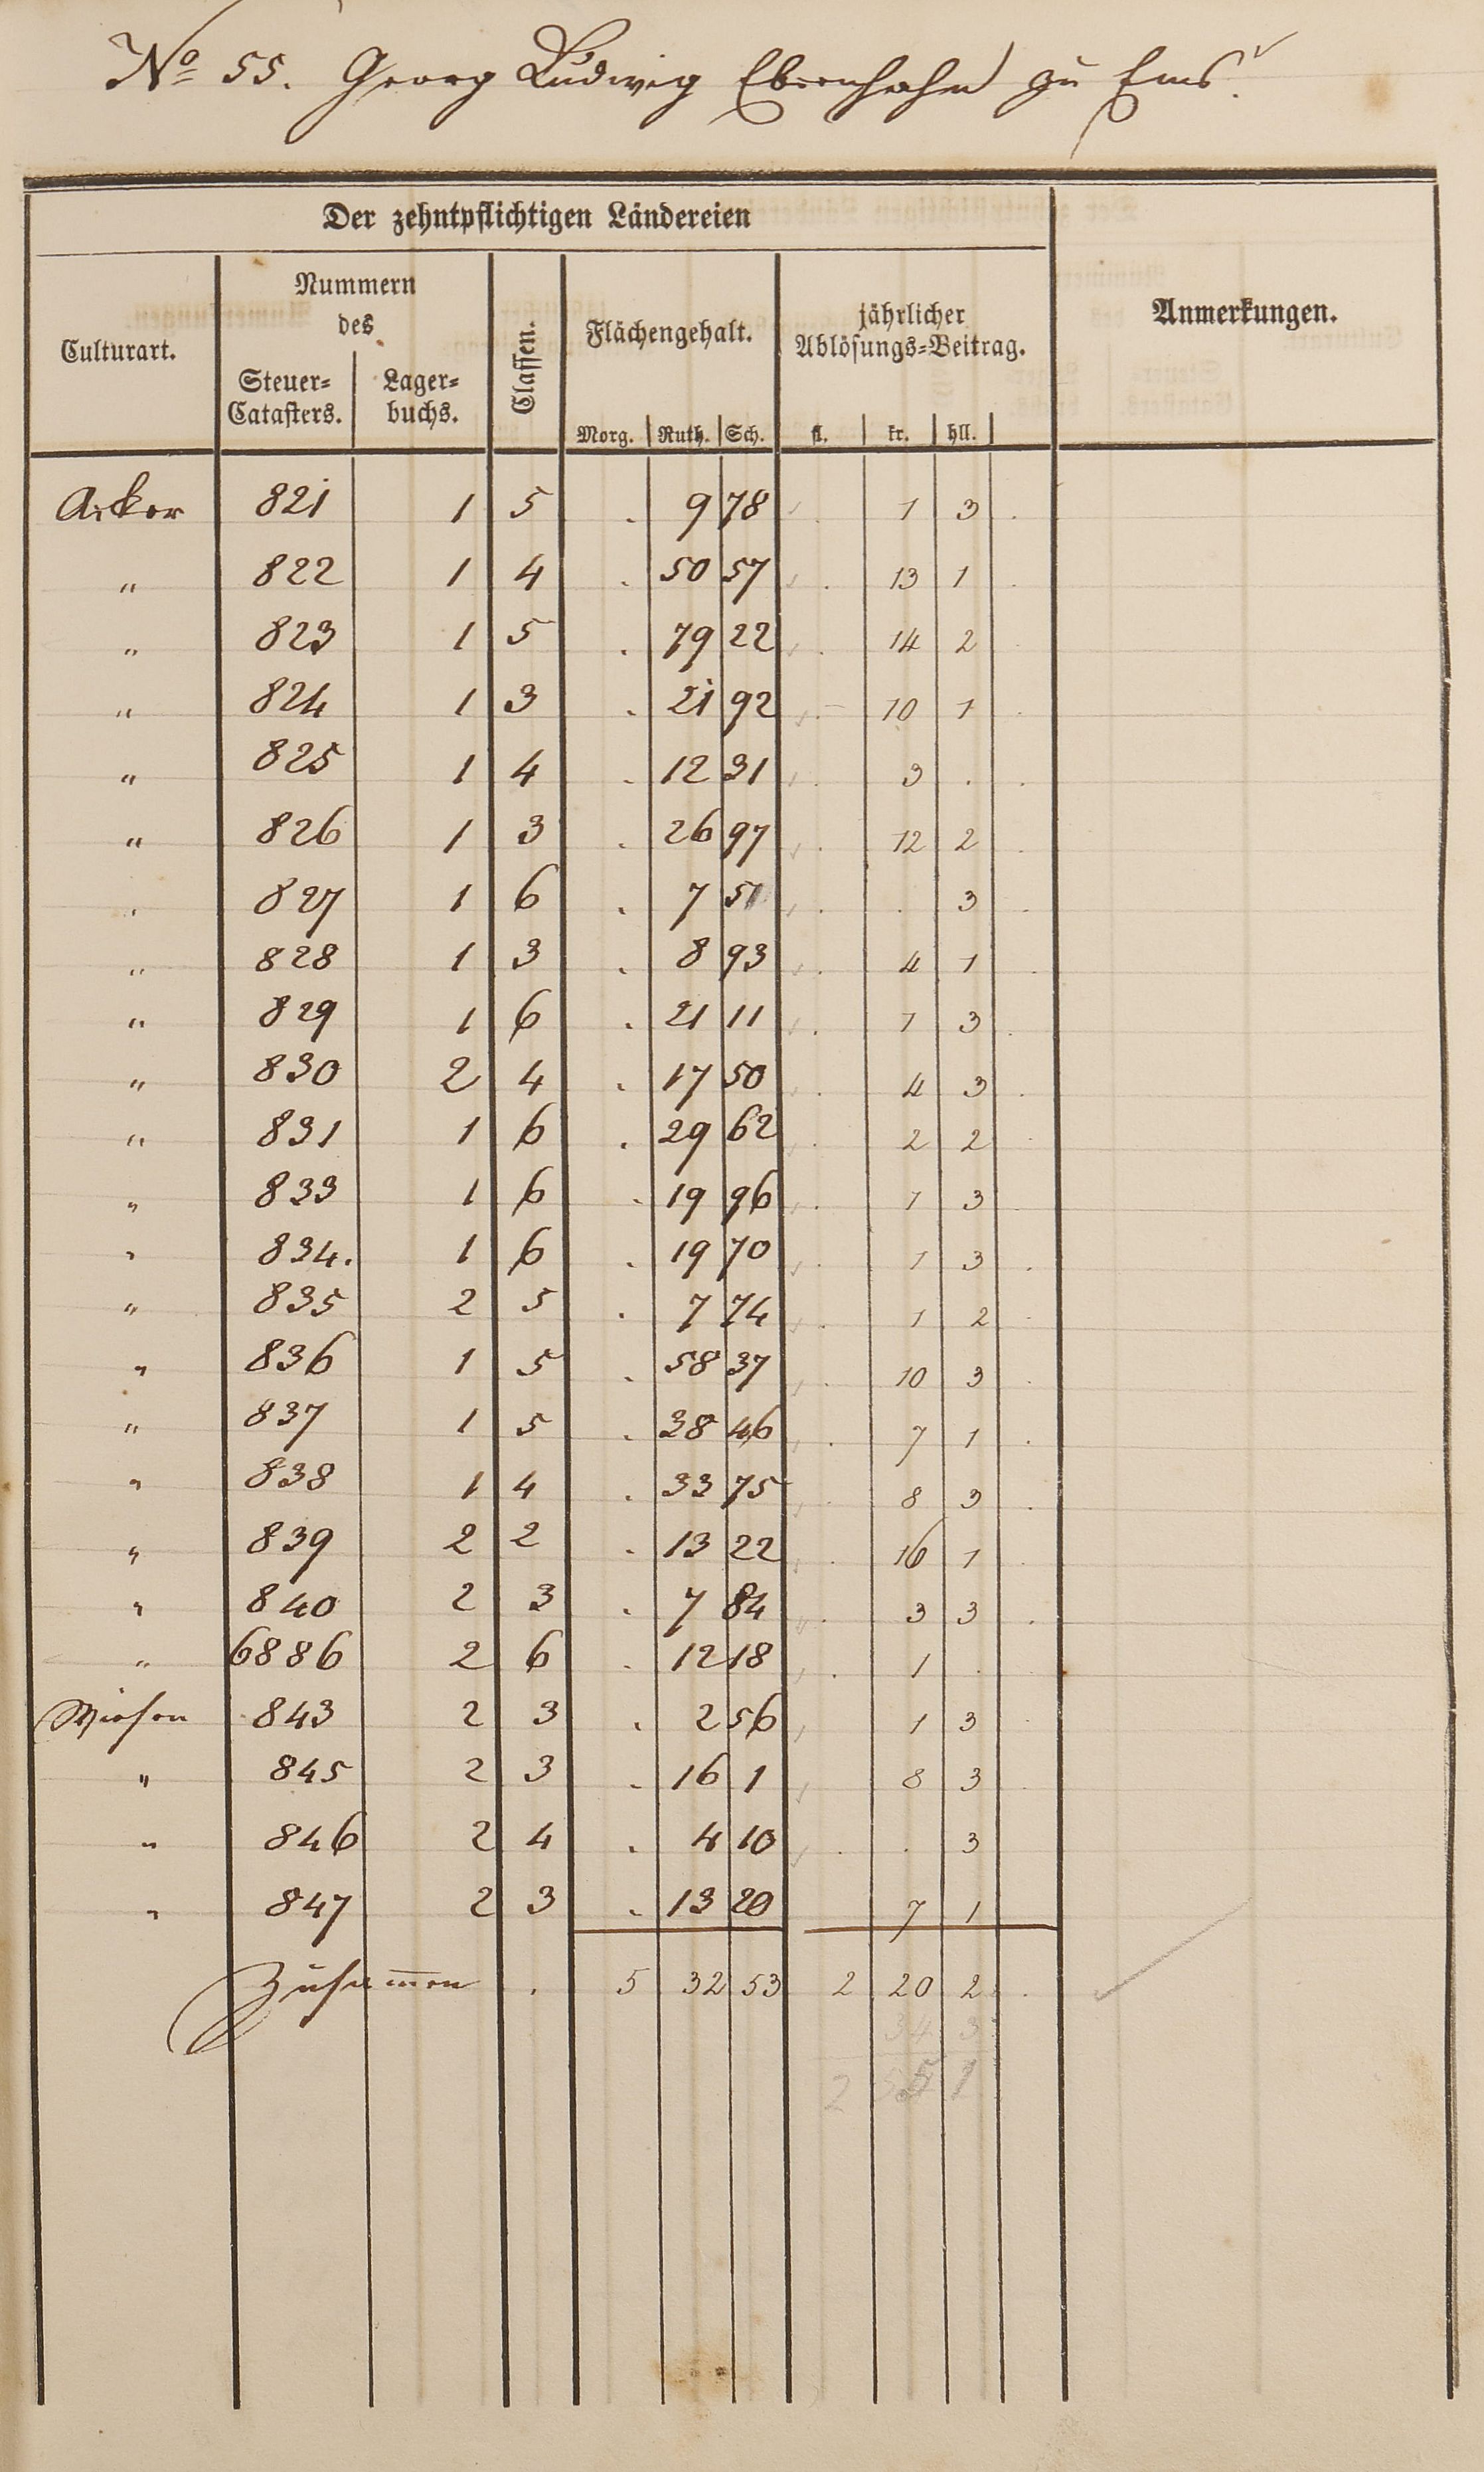 No 55. Georg Ludwig Ebernhahn zu Ems.
Der zehntpflichtigen Ländereien
Culturart.
Nummern
des
Steuer=
Catasters.
Lager=
buchs.
Classen.
Flächengehalt.
Morg. Ruth. Sch.
jährlicher
Ablösungs=Beitrag.
fl. kr. hll.
Anmerkungen.
Acker 821 1 5 . 9 78 . 1 3 .
" 822 1 4 . 50 57 . 13 1 .
" 823 1 5 . 79 22 . 14 2
" 824 1 3 . 21 92 . 10 1 .
" 825 1 4 . 12 31 . 3 . .
" 826 1 3 . 26 97 . 12 2 .
" 827 1 6 . 7 51 . . 3 .
" 828 1 3 . 8 93 . 4 1 .
" 829 1 6 . 21 11 . 1 3 .
" 830 2 4 . 17 50 . 4 3 .
" 831 1 6 . 29 62 . 2 2 .
" 833 1 6 . 19 96 . 1 3 .
" 834. 1 6 . 19 70 . 1 3 .
" 835 2 5 . 7 74 . 1 2 .
" 836 1 5 . 58 37 . 10 3 .
" 837 1 5 . 38 46 . 7 1 .
" 838 1 4 . 33 75 . 8 3 .
" 839 2 2 . 13 22 . 16 1 .
" 840 2 3 . 7 84 . 3 3 .
" 6886 2 6 . 12 18 . 1 .
Wiesen 843 2 3 . 2 56 1 3 .
" 845 2 3 . 16 1 8 3 .
" 846 2 4 . 4 10 . . 3
" 847 2 3 . 13 20 7 1
Zusammen . 5 32 53 2 20 2 .
34 3
2 55 1